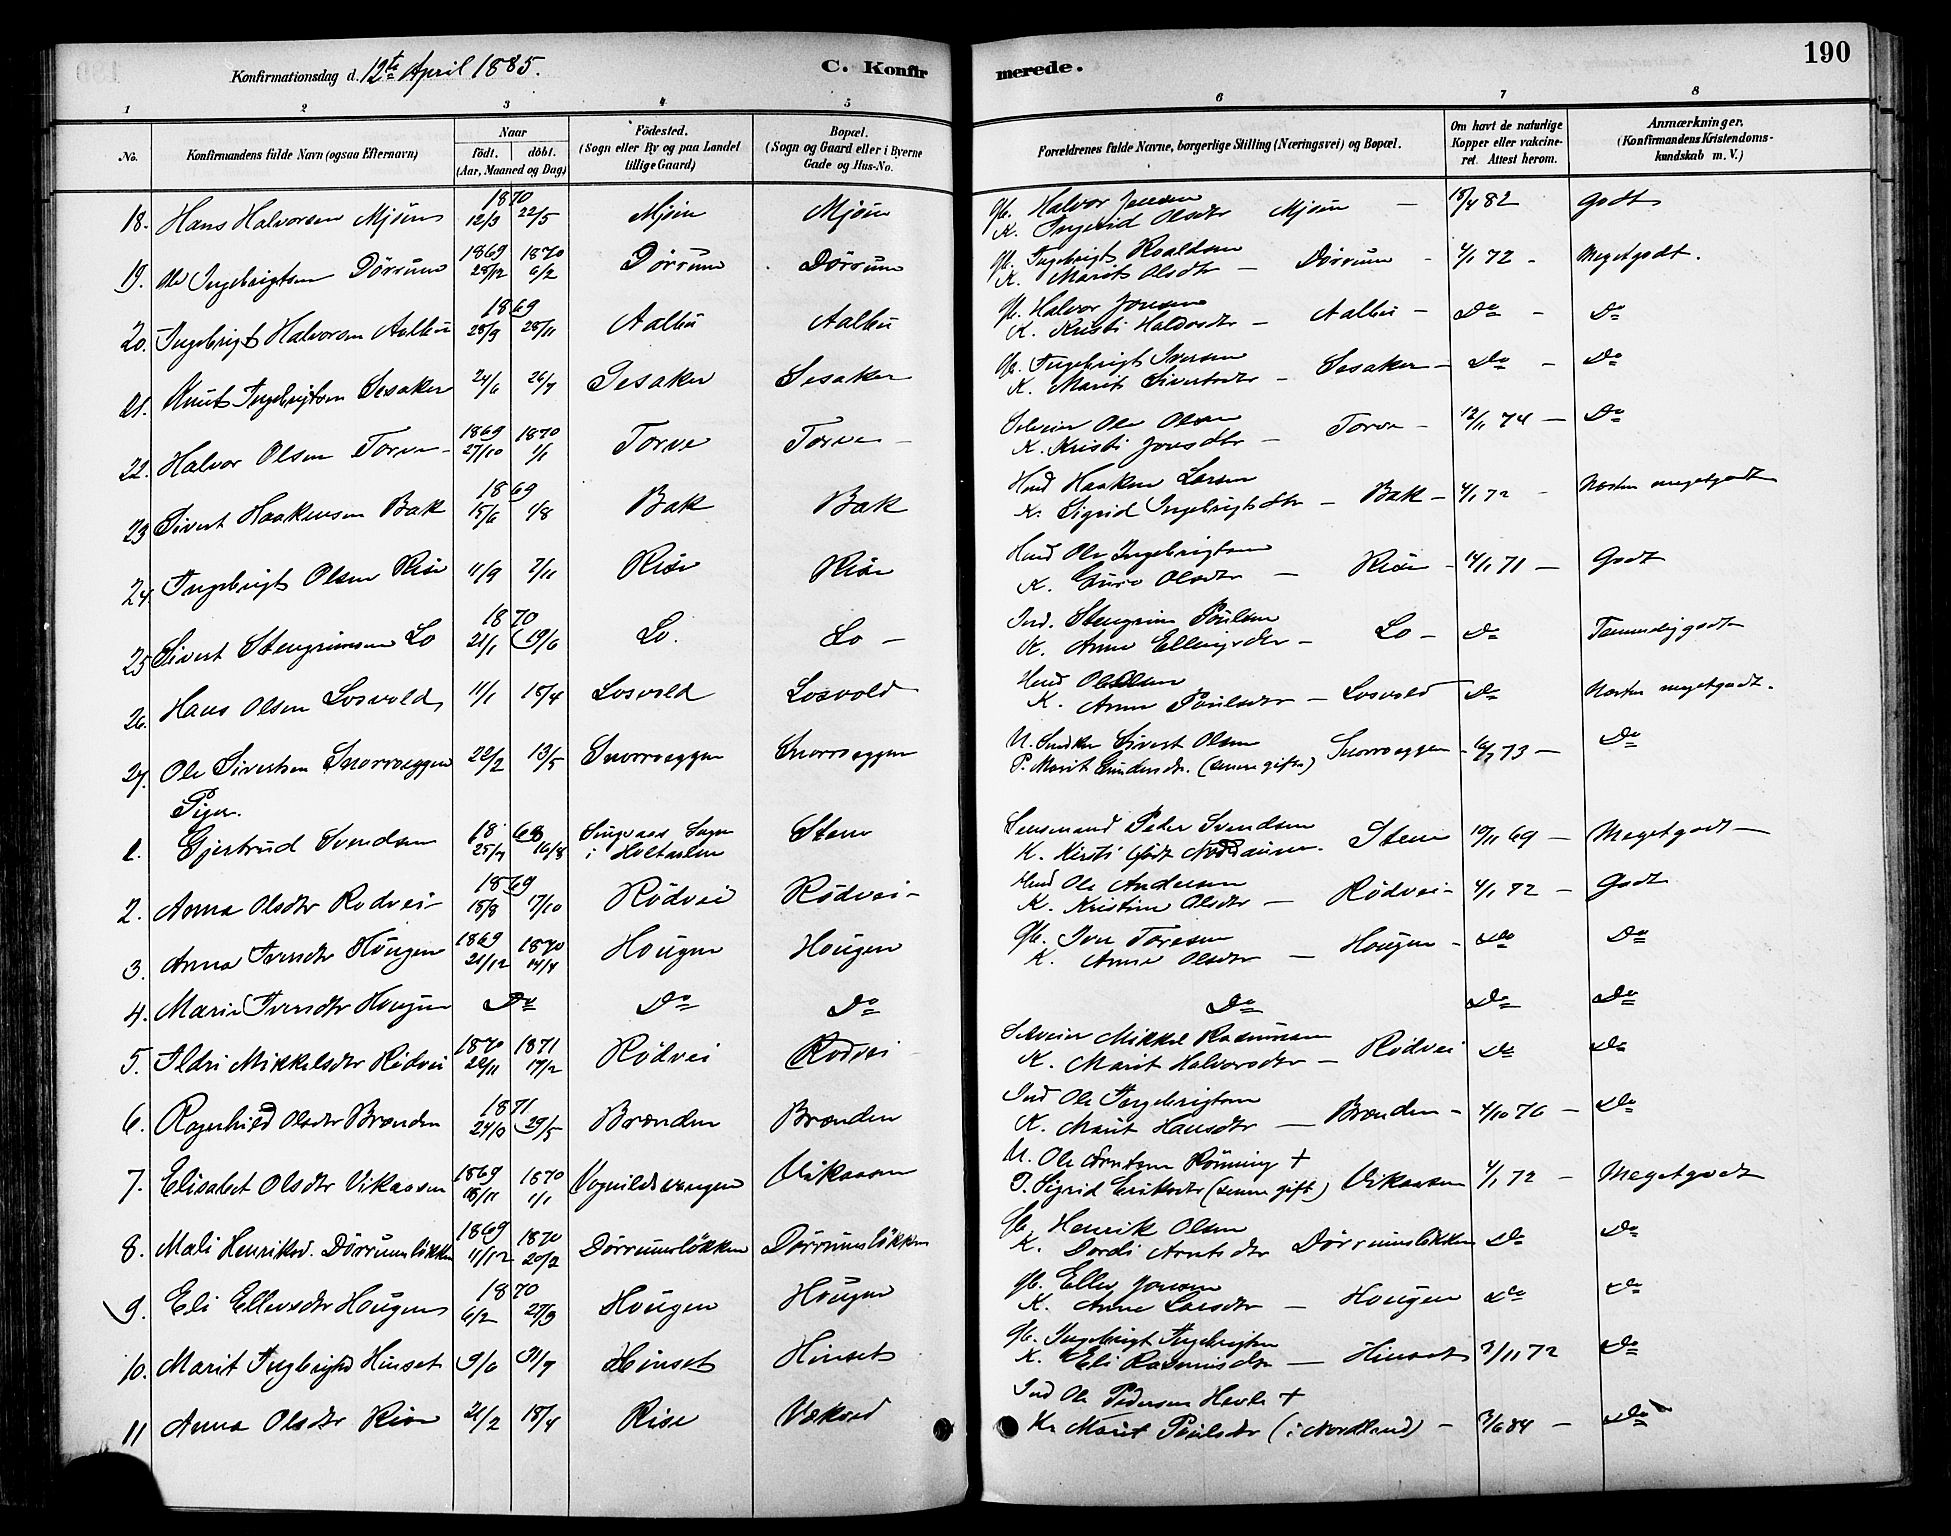 190
Konfirmationsdag d. 12te April 1885.
C. Konfirmerede.
1 2 3 4 5 6 7 8
No.
Konfirmandens fulde Navn (ogsaa Efternavn)
Naar
födt. döbt.
(Aar, Maaned og Dag)
Födested.
(Sogn eller By og paa Landet
tillige Gaard)
Bopæl.
(Sogn og Gaard eller i Byerne
Gade og Hus-No.
Forældrenes fulde Navne, borgerlige Stilling (Næringsvei) og Bopæl.
Om havt de naturlige
Kopper eller vakcine-
ret. Attest herom.
Anmærkninger.
(Konfirmandens Kristendoms-
kundskab m. V.)
18. Hans Halvorsen Mjöen 1870 12/3 22/5 Mjöen Mjöen Gb. Halvor Jensen
K. Ingerid Olsdtr Mjöen – 18/4 82 Godt
19. Ole Ingebrigtsen Dörrum 1869 28/12 1870 6/2 Dörrum Dörrum Gb. Ingebrigt Roaldsen
K. Marit Olsdtr – Dörrum – 4/1 72 – Megetgodt.
20. Ingebrigt Halvorsen Aalbu 1869 28/9 28/11 Aalbu Aalbu Gb. Halvor Jonsen
K. Kristi Haldosdtr – Aalbu – Do – Do
21. Knut Ingebrigtsen Sesaker 24/6 26/7 Sesaker Sesaker Gb. Ingebrigt Iversen
K. Marit Sivertsdtr – Sesaker – Do – Do
22. Halvor Olsen Torve 1869 27/10 1870 1/1 Torve Torve – Selveier Ole Olsen
K. Kristi Jonsdtr – Torve – 12/11 74 – Do
23 Sivert Haakensen Bak 1869 15/6 1/8 Bak Bak Hmd Haaken Larsen
K. Sigrid Ingebrigtsdtr – Bak – 4/1 72 – Næsten megetgodt
24. Ingebrigt Olsen Rise 11/9 7/11 Rise Rise Hmd Ole Ingebrigtsen
K. Guro Olsdtr – Rise – 14/1 71 – Godt
25 Sivert Stengrimsen Lo 1870 21/1 19/6 Lo. Lo – Ind. Stengrim Poulsen
K. Anne Ellingsdtr – Lo – Do Temmelig godt
26. Hans Olsen Losvold 11/1 18/4 Losvold Losvold Hmd Ole Olsen
K. Anne Poulsdtr – Losvold Do Næsten megetgodt.
27. Ole Sivertsen Snorroeggen 22/2 13/5 Snorroeggen Snorroeggen U. Snedker Sivert Olsen
P. Marit Gundersdtr. (senere gifte) Snorroeggen – 73 – Do
Piger.
1. Gjertrud Svendsen 1868 25/7 16/8 Singsaas Sogn
i Holtaalen Stene Lensmand Peder Svendsen
K. Kirsti født Stene 10/11 69 – Megetgodt –
2. Anna Olsdtr Rödvei 1869 18/8 17/10 Rödvei Rödvei – Hmd Ole Andersen
K. Kristine Olsdtr – Rödvei – 4/1 72 – Godt
3. Anna Iversdtr Hougen 1869 21/12 1870 14/4 Hougen Hougen Gb. Iver Toresen
K. Anne Olsdtr – Hougen – Do Do
4. Marie Iversdtr Hougen Do Do Do Do Do Do
5. Ildri Mikkelsdtr Rödvei 1870 20/11 1871 17/2 Rödvei Rödvei Selveier Mikkel Rasmussen
K. Marit Halvorsdtr – Rödvei Do Do
6. Ragnhild Olsdtr Brænden 1871 29/5 Brænden Brænden Ind Ole Ingebrigtsen
K. Marit Hansdtr – Brænden – 4/10 76 – Do
7. Elisabet Olsdtr Vikaasen 1869 18/11 1870 1/1 Vognildsvangen Vikaasen U. Ole Arntsen Rönning +
P. Sigrid Eriksdtr (senere gift) Vikaasen 4/1 72 – Megetgodt
8. Mali Henriksd. Dörrumslökken 1869 11/12 1870 20/2 Dörrumslökken Dörrumslökken Gb. Henrik Olsen
K. Dordi Arntsdtr Dörrumslökken Do Do
9. Eli Ellevsdtr Hougen 1870 6/2 27/3 Hougen Hougen Gb. Ellev Jonsen
K. Anne Larsdtr – Hougen Do Do
10. Marit Ingebrigtsd Hinset 9/6 31/7 Hinset Hinset Gb. Ingebrigt Ingebrigtsen
K. Eli Rasmusdtr – Hinset 3/11 72 Do
11 Anna Olsdtr Rise 21/2 18/4 Rise Vækved Ind Ole Pedersen Hevle +
K. Marit Poulsdtr (i Nordland) – 3/6 84 – Do